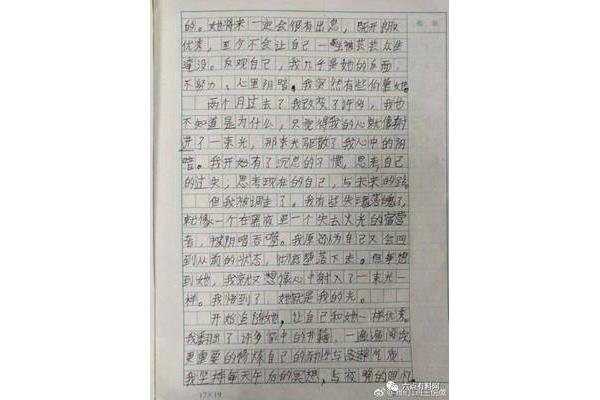 的。她将来一定会很有出息,既开朗
优秀,至少不会让自己一 被芸芸众生
淹没。反观自己,我几乎是她的反面:
不努力、心里阴暗。我突然有些仰慕她。
两个月过去了我改变了许多,我也
不知道是为什么,只觉得我的心就像射
进了一束光,那束光驱散了我心中的阴
暗。我开始有了沉思的习惯,思考自己
的过失,思考现在的自己,与未来的路。
但我被调走了。我有些失魂落魄了,
就像一个在黑夜里一个失去火光的宿营
者,被阴暗吞噬。我原以为自己又会回
到从前的状态,彻底堕落下去。但每想
到她,我就又想像心中射入了一束光一
样。我悟到了,她就是我的光。
开始追随她,让自己和她一样优秀。
我翻出了许多家中的书籍,一遍遍阅读,
更重要的修炼自己的 与 气度;
我坚持每天午后的冥想,与夜晚的
17×19
六点有料网